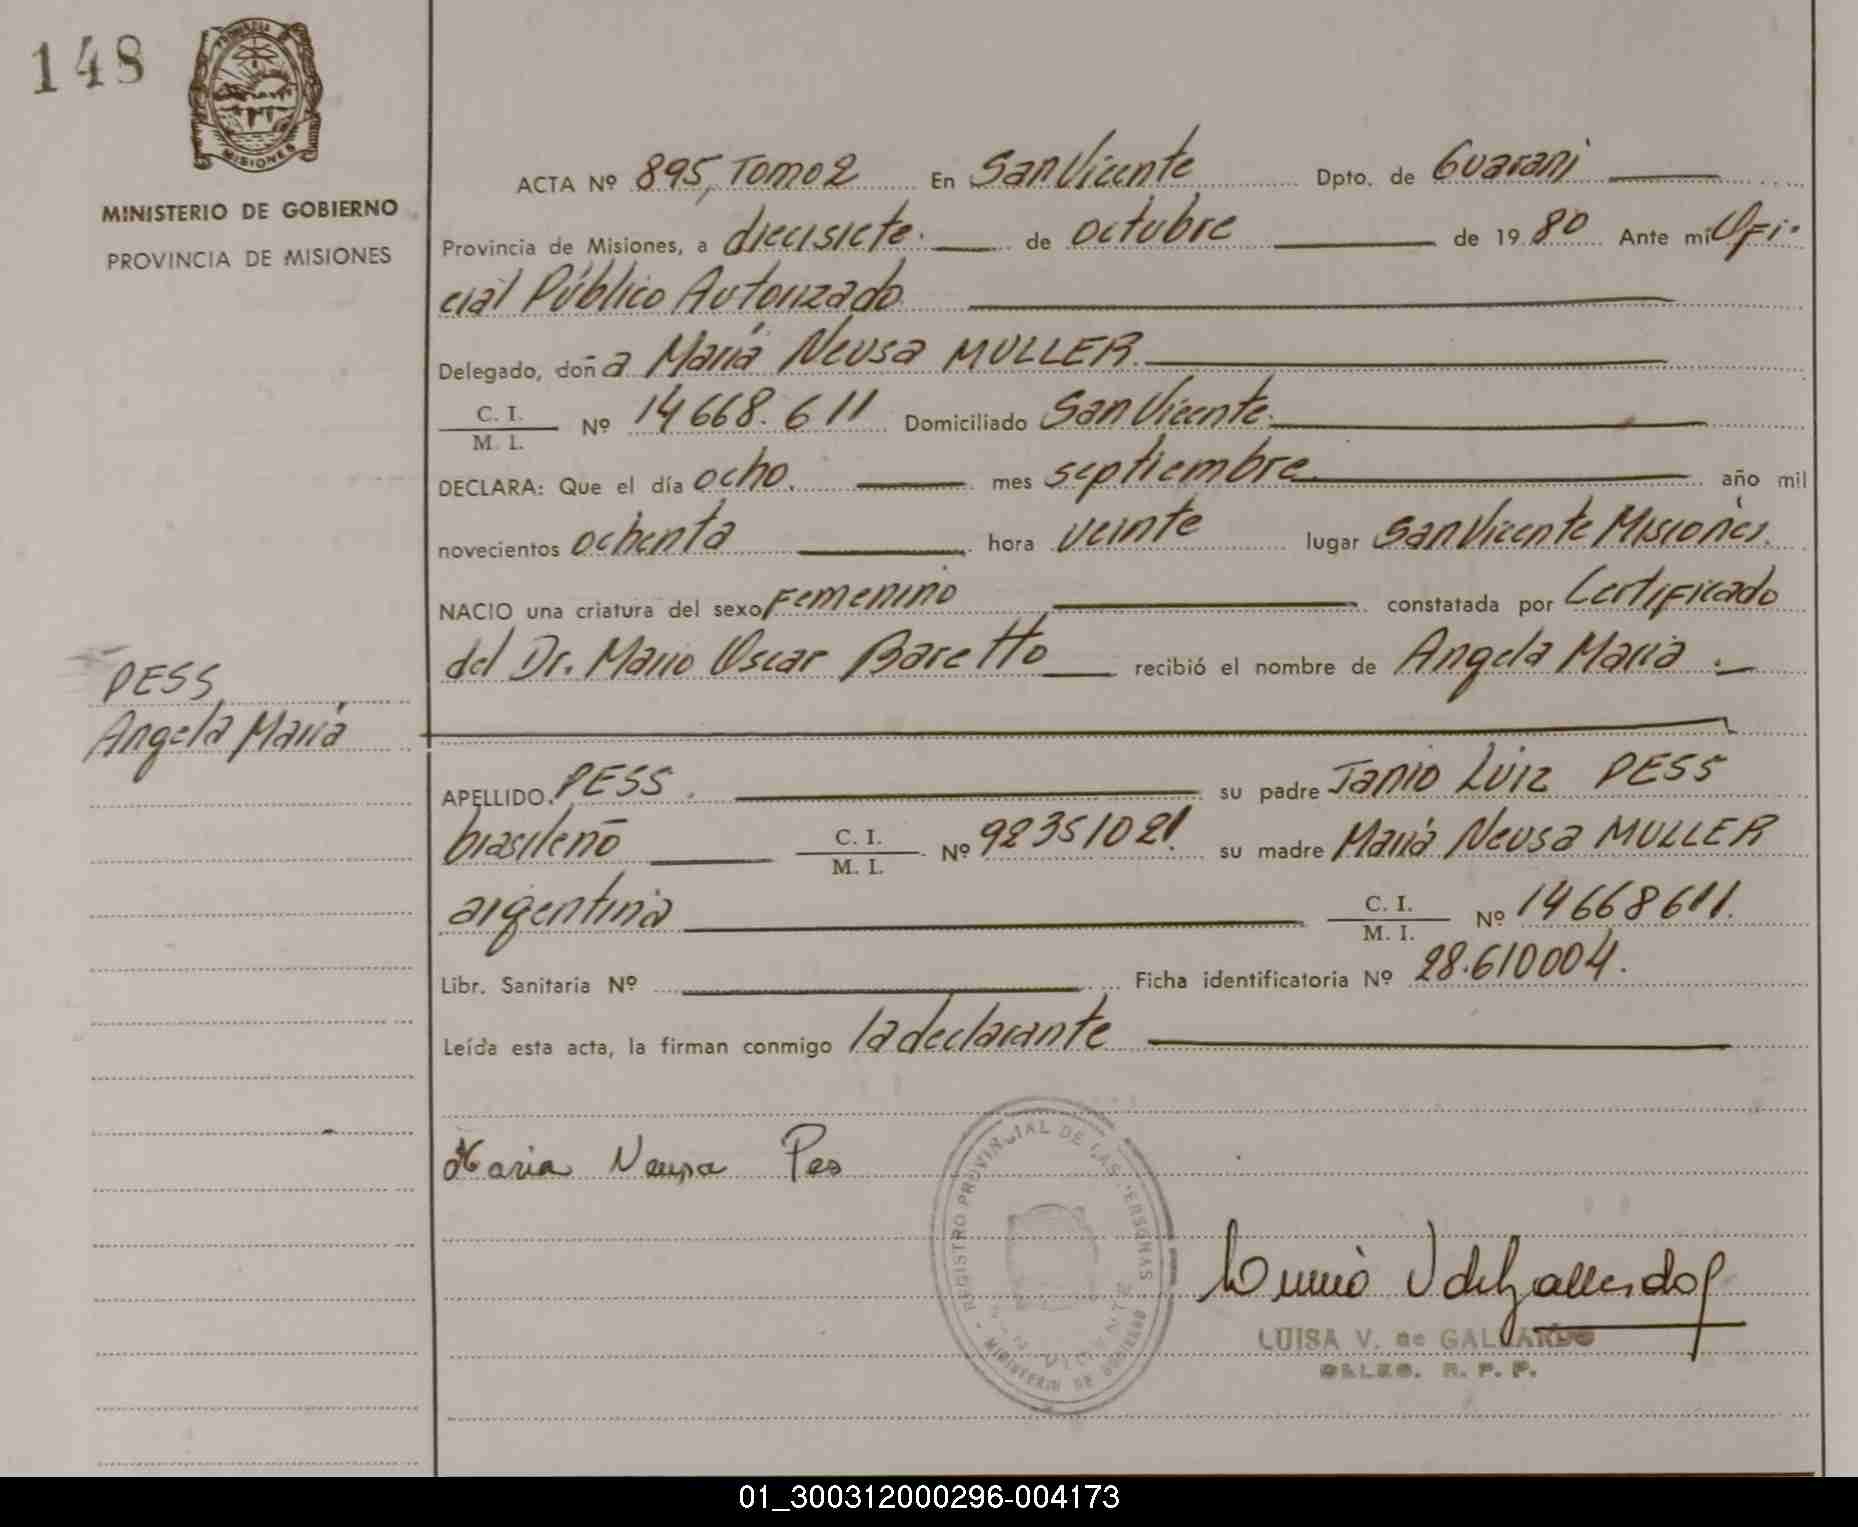 148
PROVINCIA DE
MISIONES
MINISTERIO DE GOBIERNO
PROVINCIA DE MISIONES
ACTA Nº 895, Tomo 2 En San Vicente Dpto. de Guarani
Provincia de Misiones, a diecisiete. de octubre de 1980 Ante mi Ofi-
cial Público Autorizado
Delegado, doña María Neusa MULLER
C. I.
M. I. Nº 14668.611 Domiciliado San Vicente
DECLARA: Que el día ocho. mes septiembre año mil
novecientos ochenta hora veinte lugar San Vicente Misiones.
NACIO una criatura del sexo Femenino constatada por Certificado
del Dr. Mario Oscar Baretto recibió el nombre de Angela María.
PESS
Angela María
APELLIDO. PESS. su padre Janio Luiz PESS
brasileño C. I.
M. I. Nº 92351021. su madre María Neusa MULLER
argentina C. I.
M. I. Nº 14668611.
Libr. Sanitaria Nº Ficha identificatoria Nº 28.610004.
Leída esta acta, la firman conmigo la declarante
Maria Neusa Pes
REGISTRO PROVINCIAL DE LAS PERSONAS
MINISTERIO DE GOBIERNO
LUISA V. de GALLARDO
DELEG. R. P. P.
01_300312000296-004173